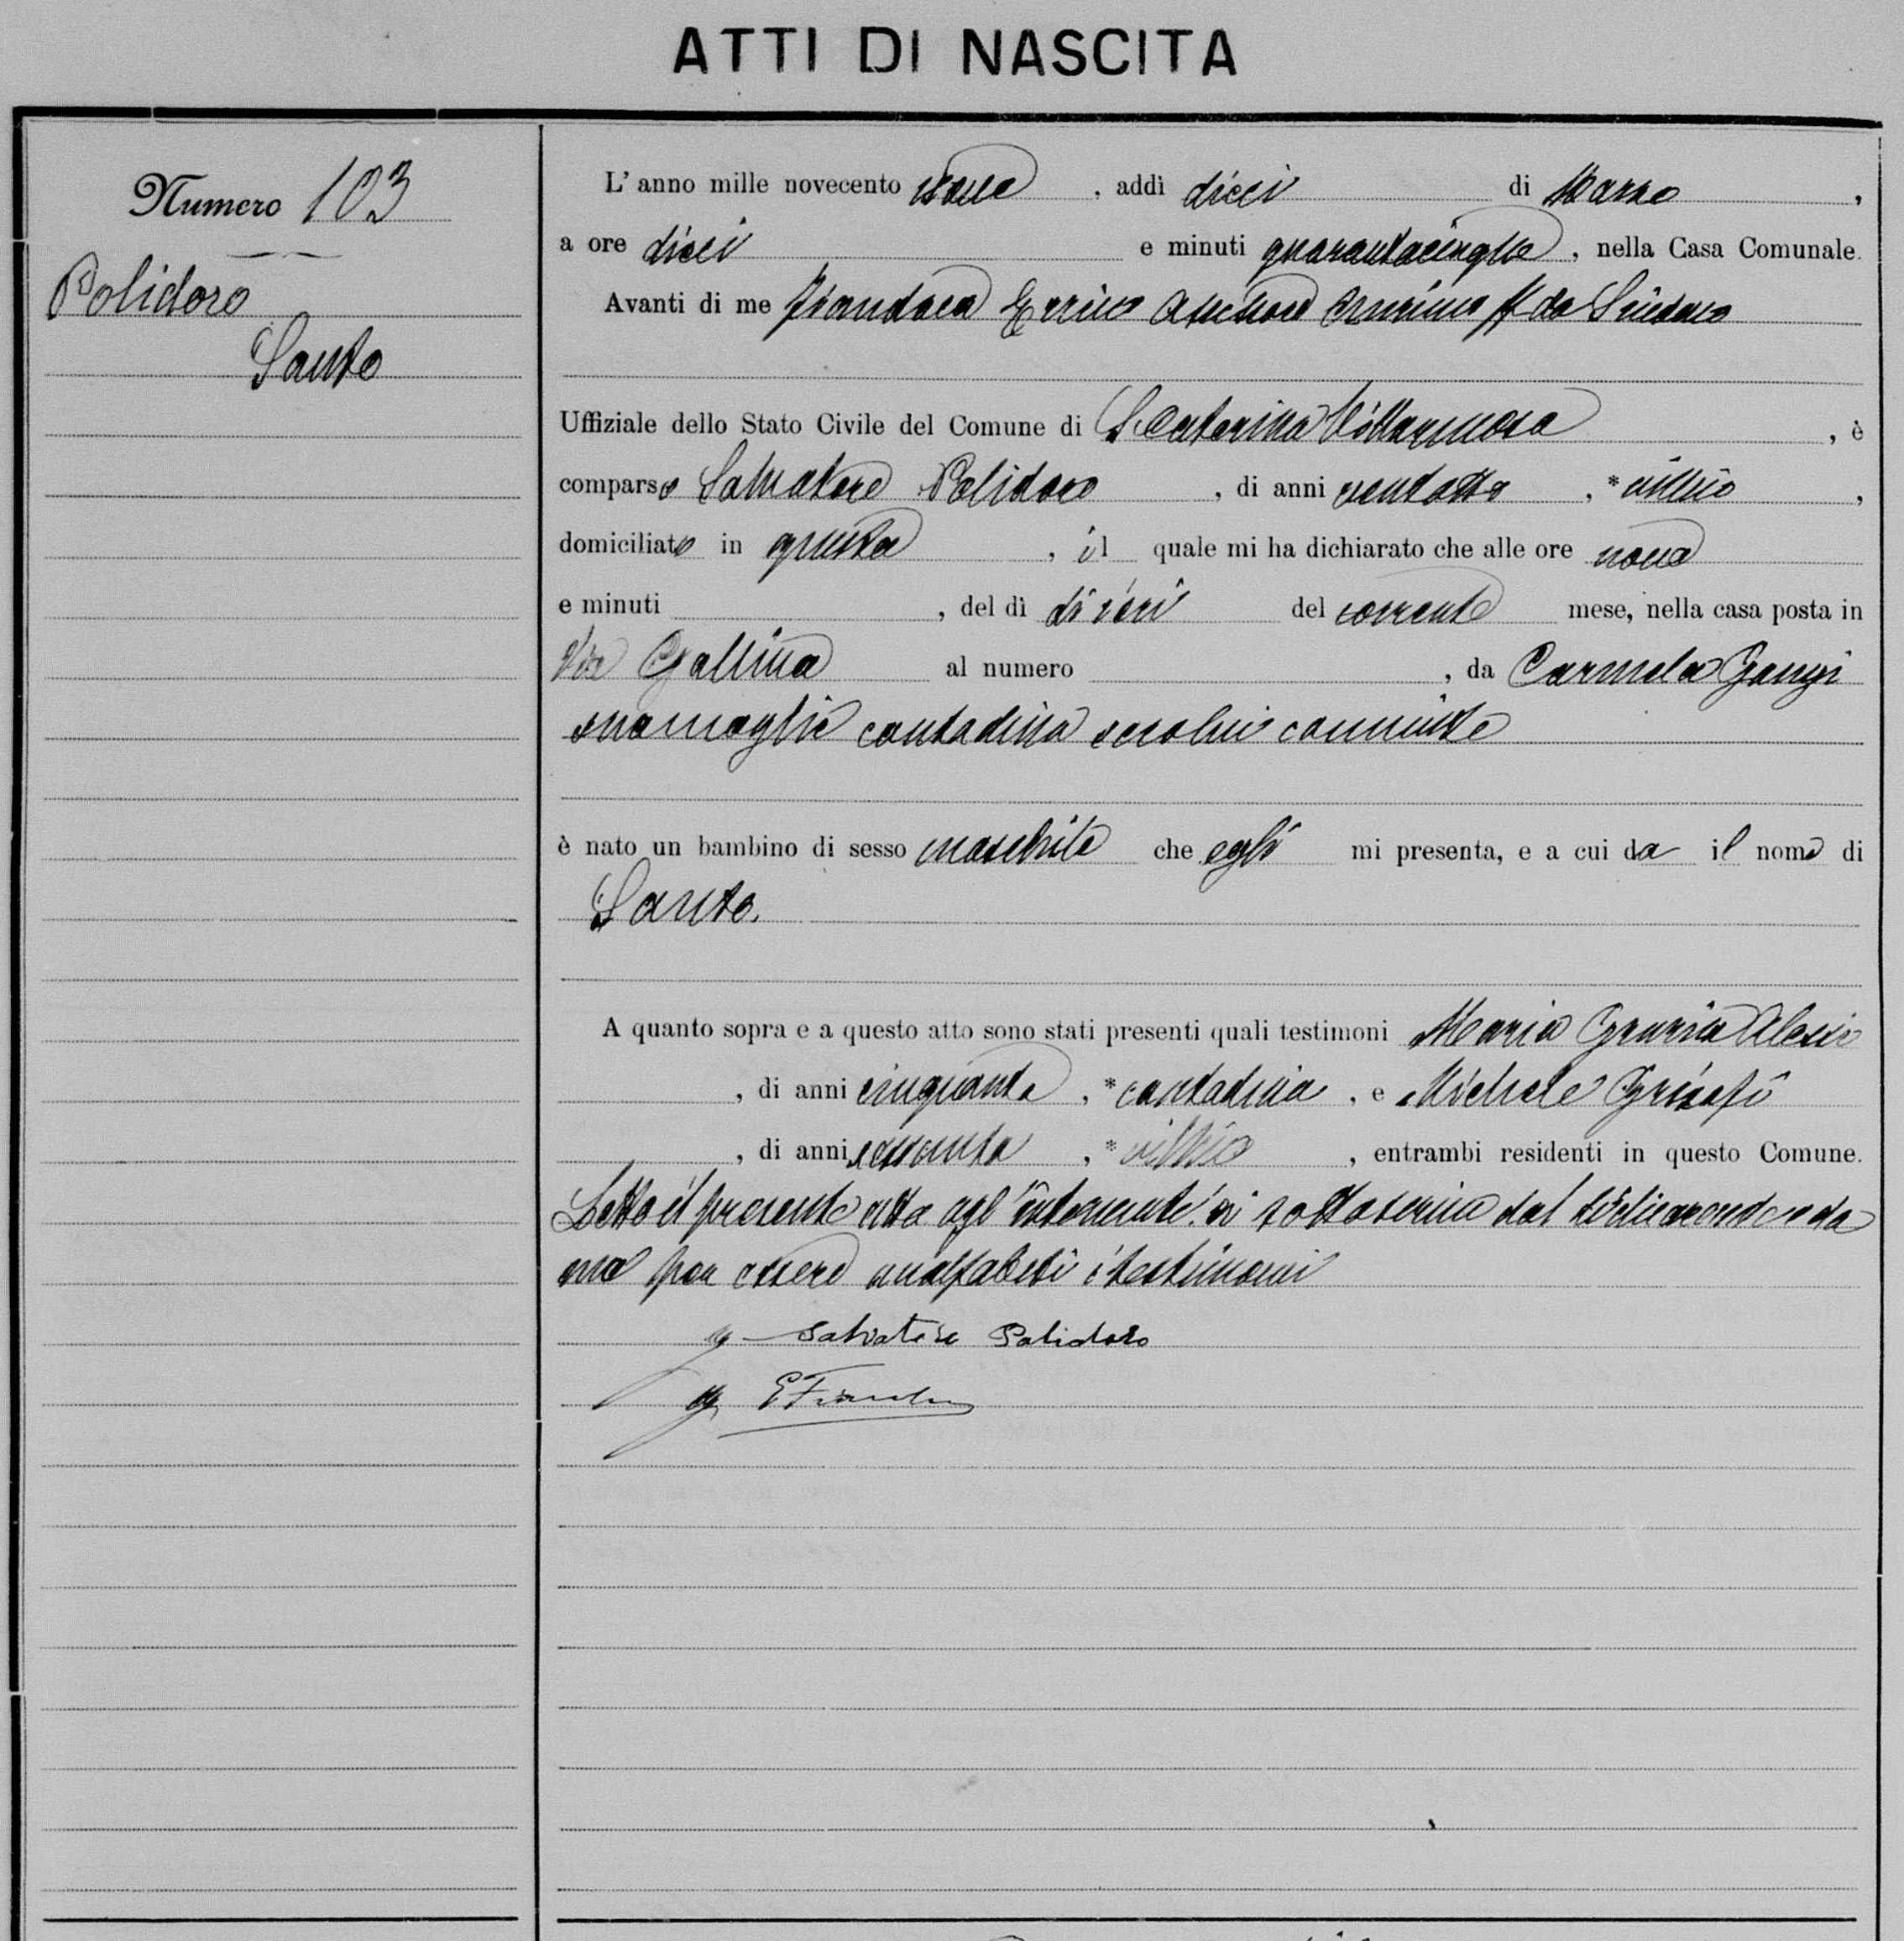 ATTI DI NASCITA
Numero 103
Polidoro
Santo
L'anno mille novecento nove, addì dieci di Marzo,
a ore dieci e minuti quarantacinque, nella Casa Comunale.
Avanti di me Fiandaca Errico Assessore Anziano ff da Sindaco
Uffiziale dello Stato Civile del Comune di S. Caterina Villarmosa, è
comparso Salvatore Polidoro, di anni ventotto, *villico,
domiciliato in questa, il quale mi ha dichiarato che alle ore nove
e minuti , del dì di ieri del corrente mese, nella casa posta in
Via Gallina al numero , da Carmela Gangi
sua moglie contadina secolui convivente
è nato un bambino di sesso maschile che egli mi presenta, e a cui da il nome di
Santo.
A quanto sopra e a questo atto sono stati presenti quali testimoni Maria Grazia Alessi
, di anni cinquanta, *contadina, e Michele Grisafi
, di anni sessanta, *villico, entrambi residenti in questo Comune.
Letto il presente atto agl'intervenuti si sottoscrive dal dichiarante e da
me per essere analfabeti i testimoni
Salvatore Polidoro